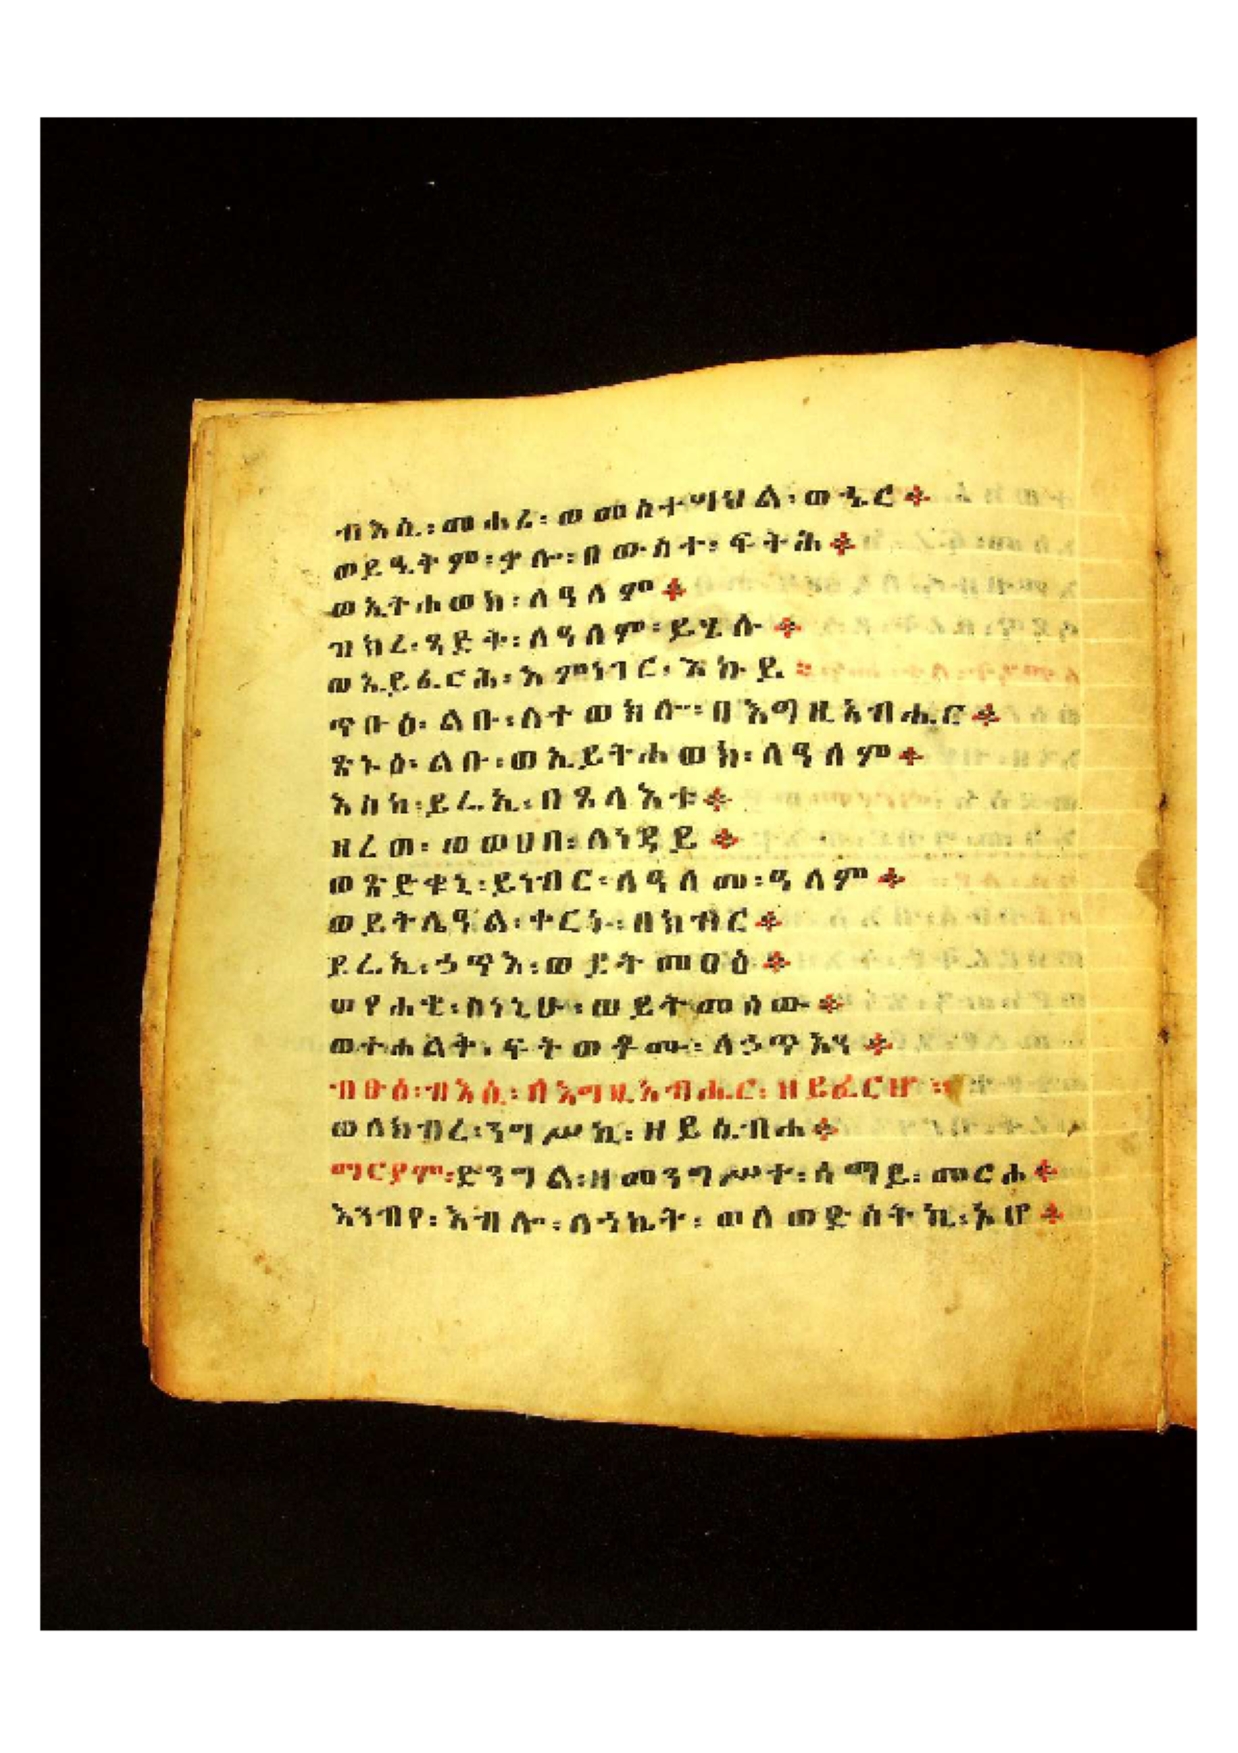 ብእሲ፡ መሐሪ፡ ወመስተማህል፡ ወኄር ።
ወይዔትም፡ ቃሎ፡ በውስተ፡ ፍትሕ ።
ወኢትሐወክ፡ ለዓለም ።
ዝክረ፡ ጻድቅ፡ ለዓለም፡ ይሄሉ ።
ወኢይፈርሕ፡ እምነገር፡ እኩይ ።
ጥቡዕ፡ ልቡ፡ ለተወክሎ፡ በእግዚአብሔር ።
ጽኑዕ፡ ልቡ፡ ወኢይትሐወክ፡ ለዓለም ።
እስከ፡ ይሬኢ፡ በጸላእቱ ።
ዘረወ፡ ወወሀበ፡ ለነዳይ ።
ወጽድቁኒ፡ ይነብር፡ ለዓለመ፡ ዓለም ።
ወይትሌዓል፡ ቀርኑ፡ በክብር ።
ይሬኢ፡ ኃጥእ፡ ወይትመዐዕ ።
ወየሐቂ፡ ስነኒሁ፡ ወይትመሰው ።
ወተሐልቅ፡ ፍትወቶሙ፡ ለኃጥእን ።
ብፁዕ፡ ብእሲ፡ በእግዚአብሔር፡ ዘይፈርህ ።
ወለክብረ፡ ንግሥኪ፡ ዘይሴብሐ ።
ማርያም፡ ድንግል፡ ዘመንግሥተ፡ ሰማይ፡ መርሐ ።
እንብየ፡ እብሎ፡ ለኀኬት፡ ወለወድስትኪ፡ ኦሆ ።